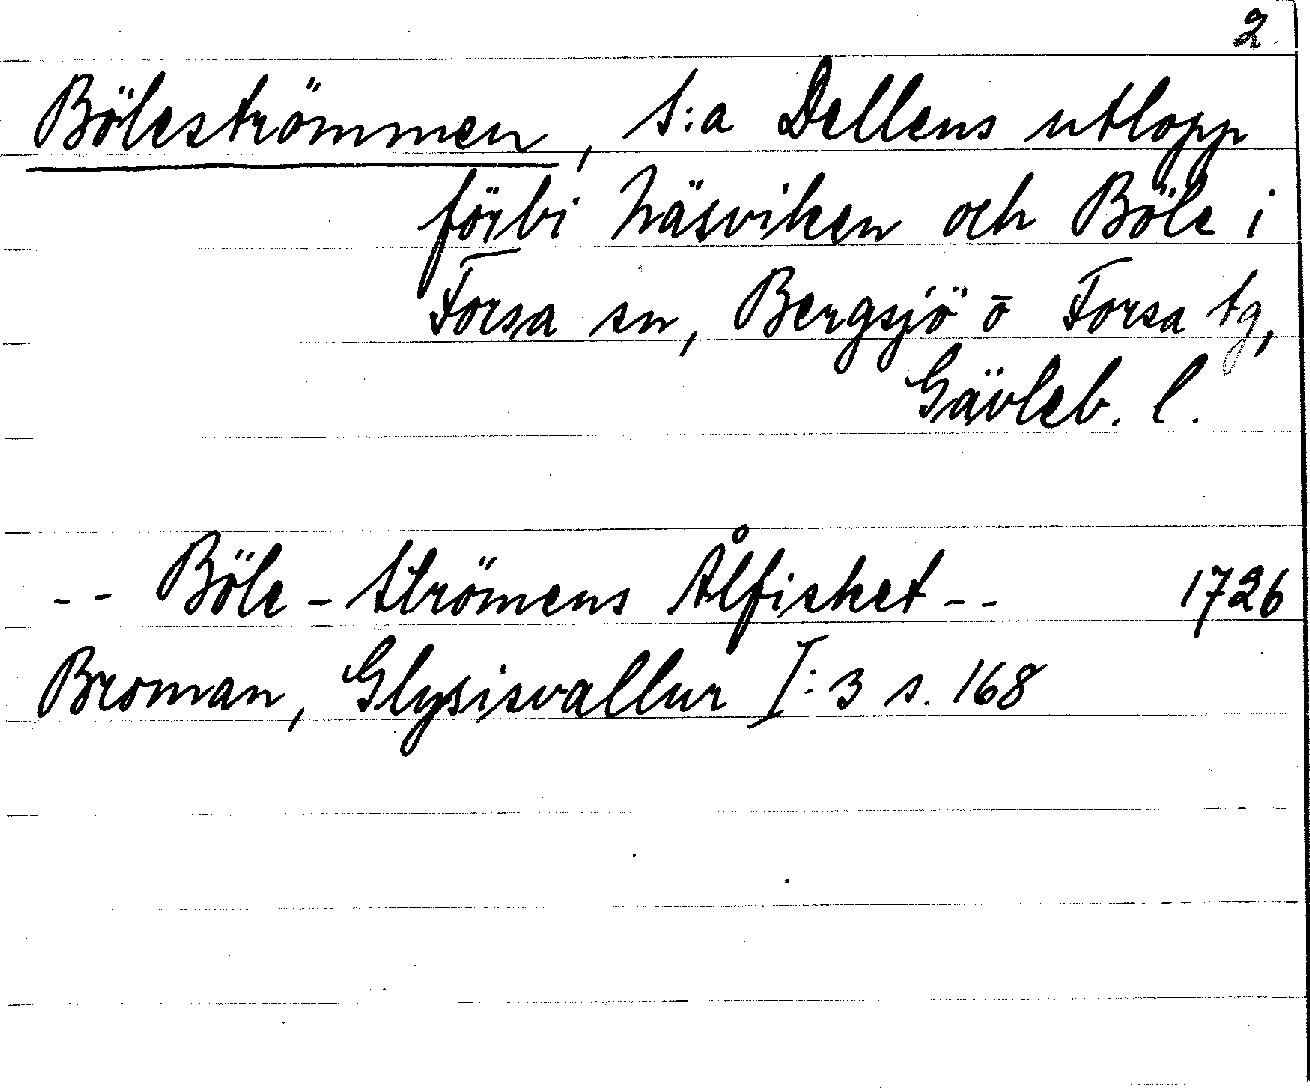 2
Böleströmmen, S:a Dellens utlopp
förbi Näsviken och Böle i
Forsa sn, Bergsjö o Forsa tg,
Gävleb. l.
-- Böle-Strömens Ålfisket -- 1726
Broman, Glysisvallur I:3 s. 168